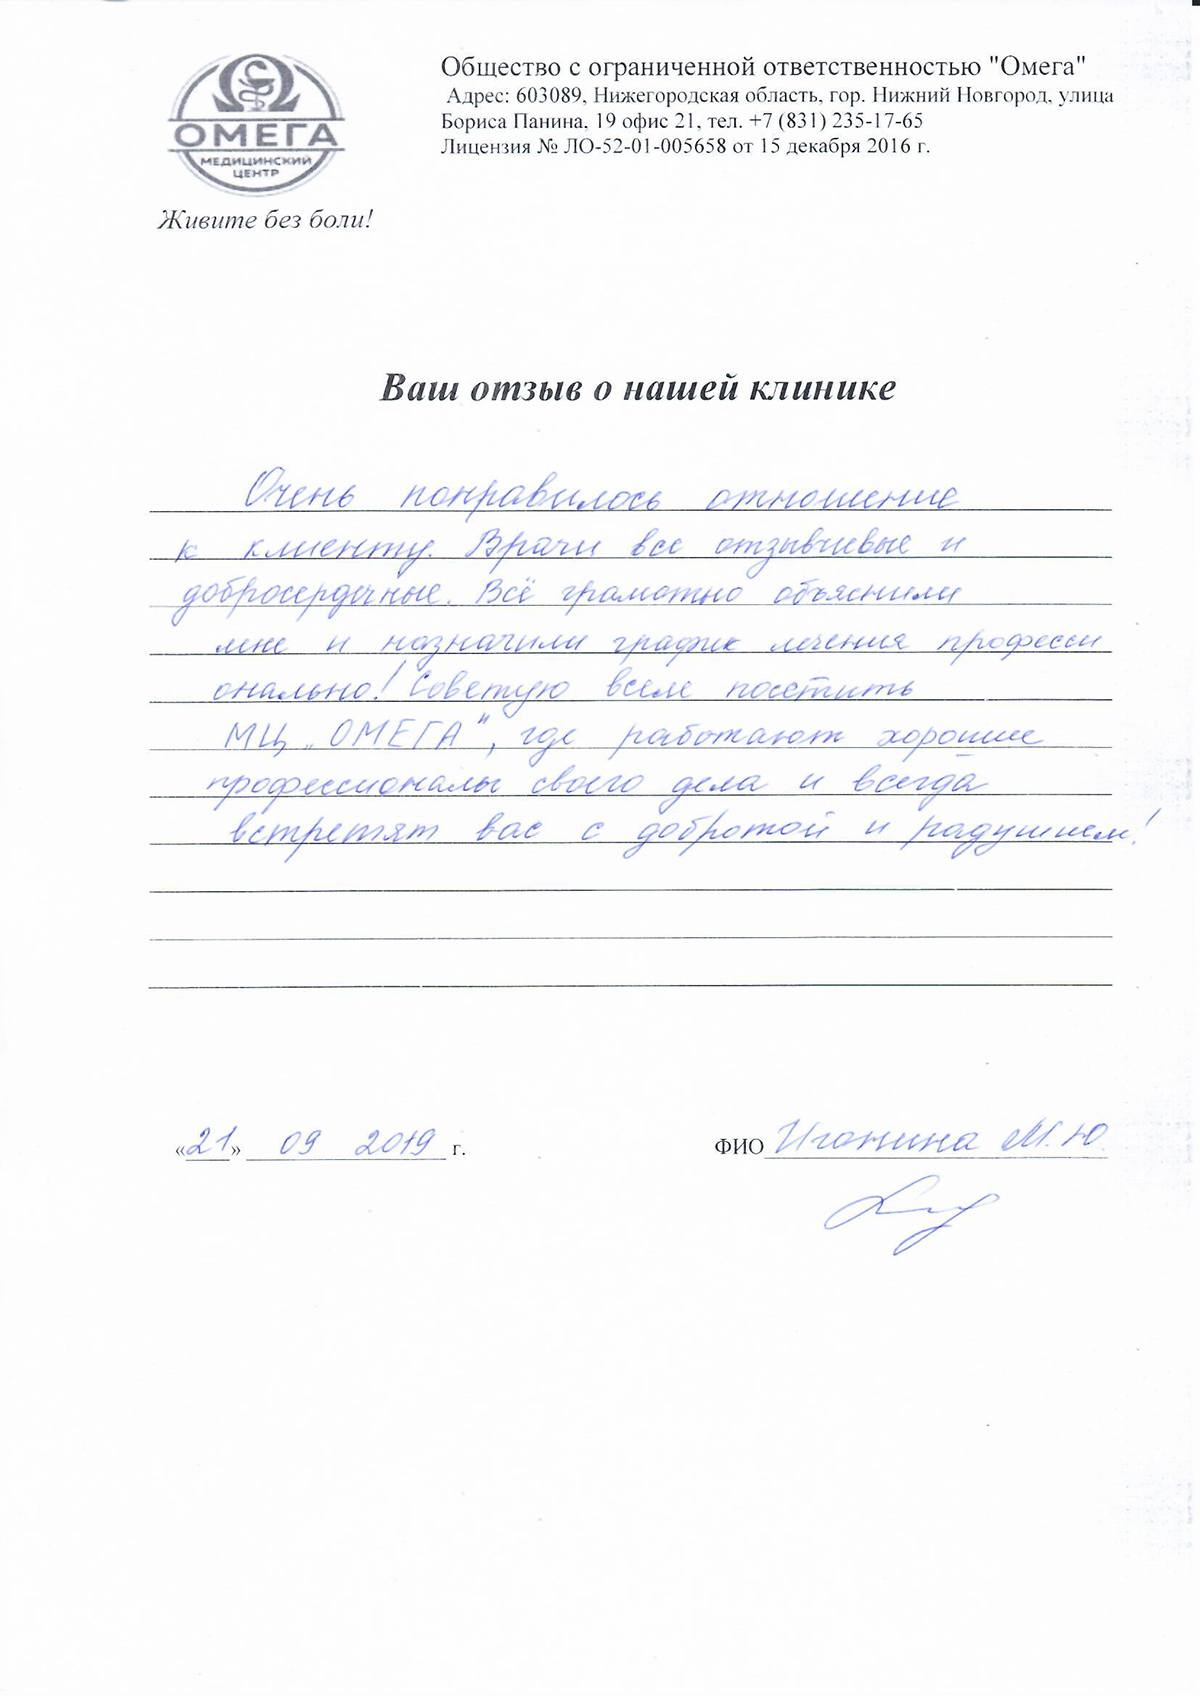 ОМЕГА
МЕДИЦИНСКИЙ
ЦЕНТР
Живите без боли!
Общество с ограниченной ответственностью "Омега"
Адрес: 603089, Нижегородская область, гор. Нижний Новгород, улица
Бориса Панина, 19 офис 21, тел. +7 (831) 235-17-65
Лицензия № ЛО-52-01-005658 от 15 декабря 2016 г.
Ваш отзыв о нашей клинике
Очень понравилось отношение
к клиенту. Врачи все отзывчивые и
добросердечные. Всё грамотно объяснили
мне и назначили график лечения професси
онально! Советую всем посетить
МЦ „ОМЕГА", где работают хорошие
профессионалы своего дела и всегда
встретят вас с добротой и радушием!
«21» 09 2019 г.
ФИО Игонина М.Ю.